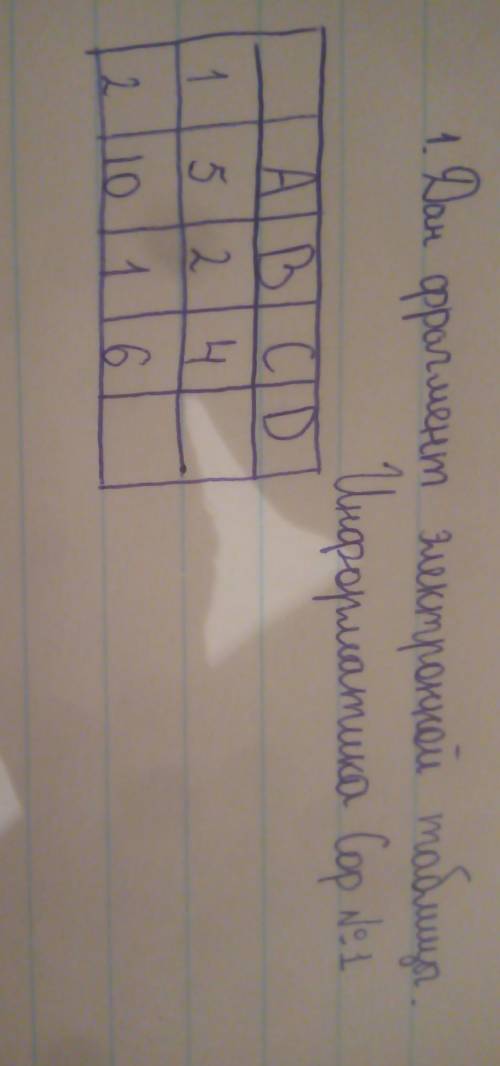 1. Дан фрагмент электронной таблицы.
Информатика Сор №1
A B C D
1 5 2 4
2 10 1 6